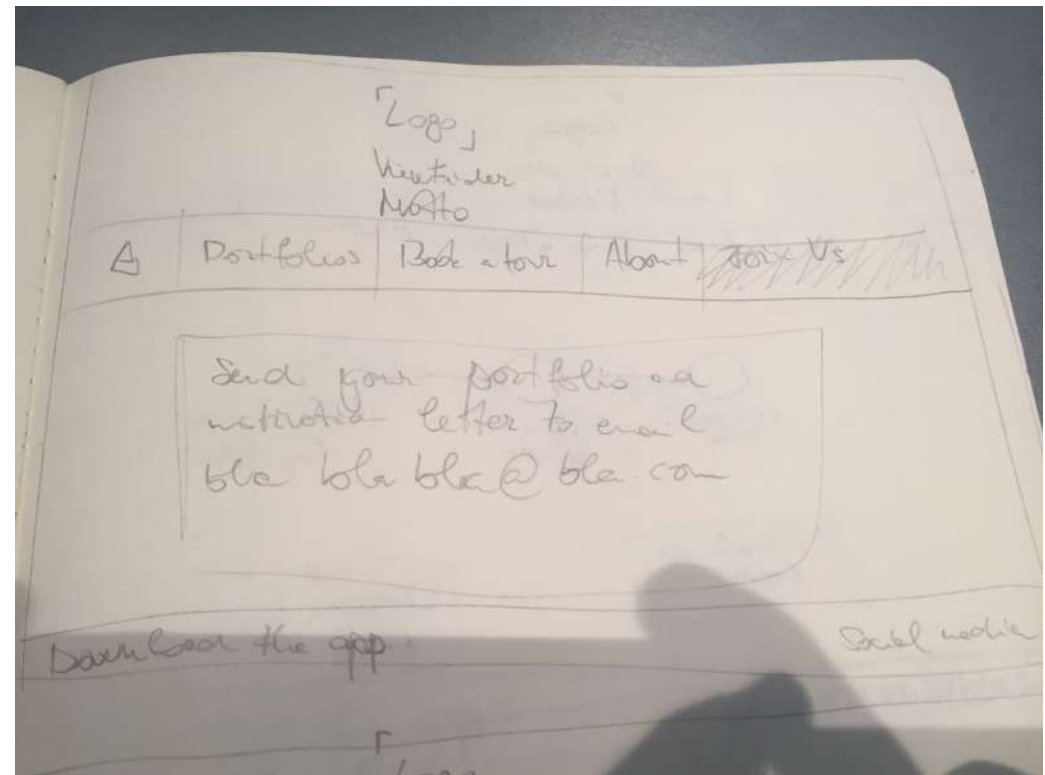 Logo
Viewfinder
Motto
Portfolios Book a tour About Join Us
Send your portfolio and
motivation letter to email
bla bla bla@bla.com
Download the app Social media
Logo